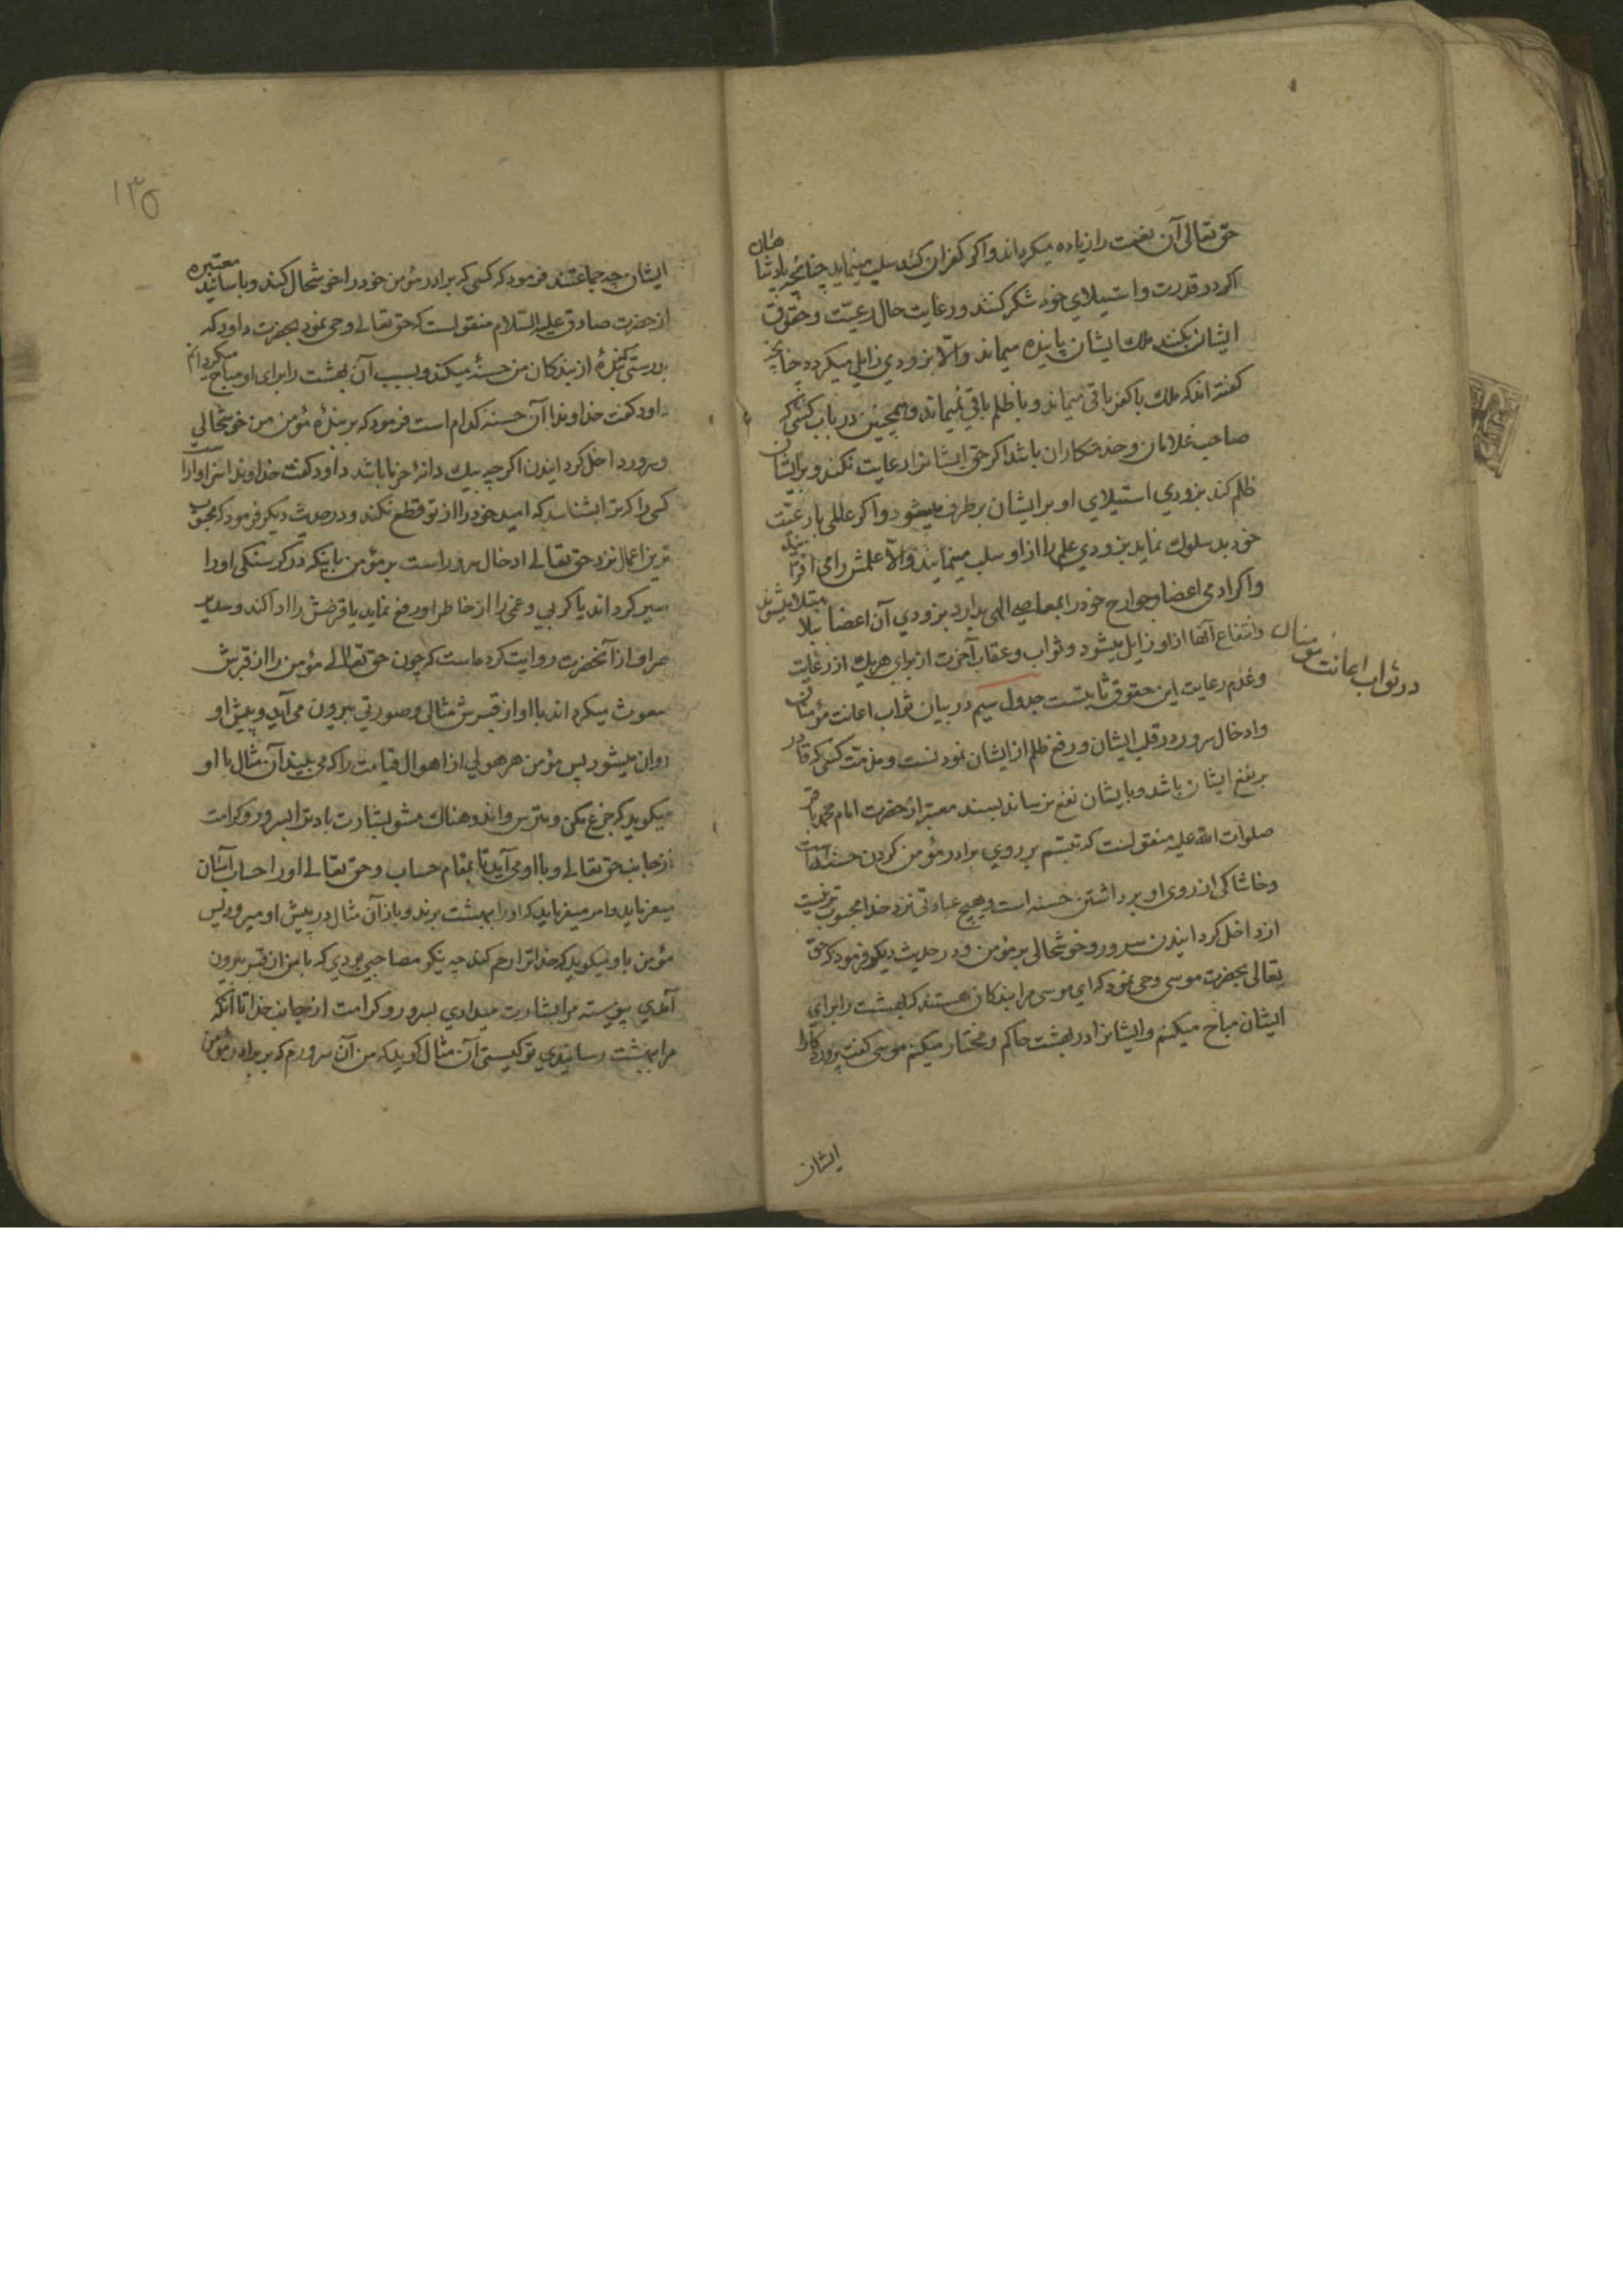 حق تعالی آن نعمت را زیاده میکرداند و اکر کفران کند سلب مینماید چنانچه پادشاهان
اکر در قدرت و استیلای خود شکر کنند و رعایت حال رعیّت و حقوق
ایشان بکنند ملک ایشان پاینده میماند و الّا بزودی زایل میکردد چنانچه
کفته اند که ملک با کفر باقی میماند و با ظلم باقی نمیماند و همچنین در باب کسی که
صاحب غلامان و خدمتکاران باشد اکر حق ایشانرا رعایت نکند و بر ایشان
ظلم کند بزودی استیلای او بر ایشان برطرف میشود و اکر عالمی با رعیّت
خود بد سلوک نماید بزودی علم را از او سلب مینمایند و الّا علمش را می افزایند
و اکر ادمی اعضا و جوارح خود را بمعاصی الهی بدارد بزودی آن اعضا ببلا مبتلا میشوند
و انتفاع آنها از او زایل میشود و ثواب و عقاب آخرت از برای هریک از رعایت
در ثواب اعانت مؤمنان
و عدم رعایت این حقوق ثابتست جدول سیم در بیان ثواب اعانت مؤمنان
و ادخال سرور در قلب ایشان و رفع ظلم از ایشان نمودنست و مذمّت کسی که قادر
بر نفع ایشان باشد و بایشان نفع نرساند بسند معتبر از حضرت امام محمد باقر
صلوات الله علیه منقولست که تبسّم بر روی برادر مؤمن کردن حسنه است
و خاشاکی از روی او برداشتن حسنه است و هیچ عبادتی نزد خدا محبوب تر نیست
از داخل کردانیدن سرور و خوشحالی بر مؤمن و در حدیث دیکر فرمود که حق
تعالی بحضرت موسی وحی نمود که ای موسی مرا بندکان هستند که بهشت را برای
ایشان مباح میکنم و ایشانرا در بهشت حاکم و مختار میکنم موسی کفت پروردکارا
ایشان
۱۳۵
ایشان چه جماعتند فرمود که کسی که برادر مؤمن خود را خوشحال کند و باسانید معتبره
از حضرت صادق علیه السّلام منقولست که حق تعالی وحی نمود بحضرت داود که
بدرستی که بندۀ از بندکان من حسنۀ میکند و بسبب آن بهشت را برای او مباح میکردانم
داود کفت خداوندا آن حسنه کدام است فرمود که بر بندۀ مؤمن من خوشحالی
و سرور داخل کردانیدن اکرچه بیک دانۀ خرما باشد داود کفت خداوندا سزاوار است
کسی را که ترا بشناسد که امید خود را از تو قطع نکند و در حدیث دیکر فرمود که محبوب
ترین اعمال نزد حق تعالی ادخال سرور است بر مؤمن باینکه در کرسنکی او را
سیر کرداند یا کربی و غمی را از خاطر او رفع نماید یا قرضش را ادا کند و سدیر
صراف از آنحضرت روایت کرده است که چون حق تعالی مؤمن را از قبرش
مبعوث میکرداند با او از قبرش مثالی و صورتی بیرون می آید و پیش او
روان میشود پس مؤمن هر هولی از اهوال قیامت را که می بیند آن مثال با او
میکوید که جزع مکن و مترس و اندوهناک مشو بشارت باد ترا بسرور و کرامت
از جانب حق تعالی و با او می آید تا بمقام حساب و حق تعالی او را حساب آسان
میفرماید و امر میفرماید که او را ببهشت برند و باز آن مثال در پیش او میرود پس
مؤمن باو میکوید که خدا ترا رحم کند چه نیکو مصاحبی بودی که با من از قبر بیرون
آمدی پیوسته مرا بشارت میدادی بسرور و کرامت از جانب خدا تا آنکه
مرا ببهشت رسانیدی تو کیستی آن مثال کوید که من آن سرورم که بر برادر مؤمن